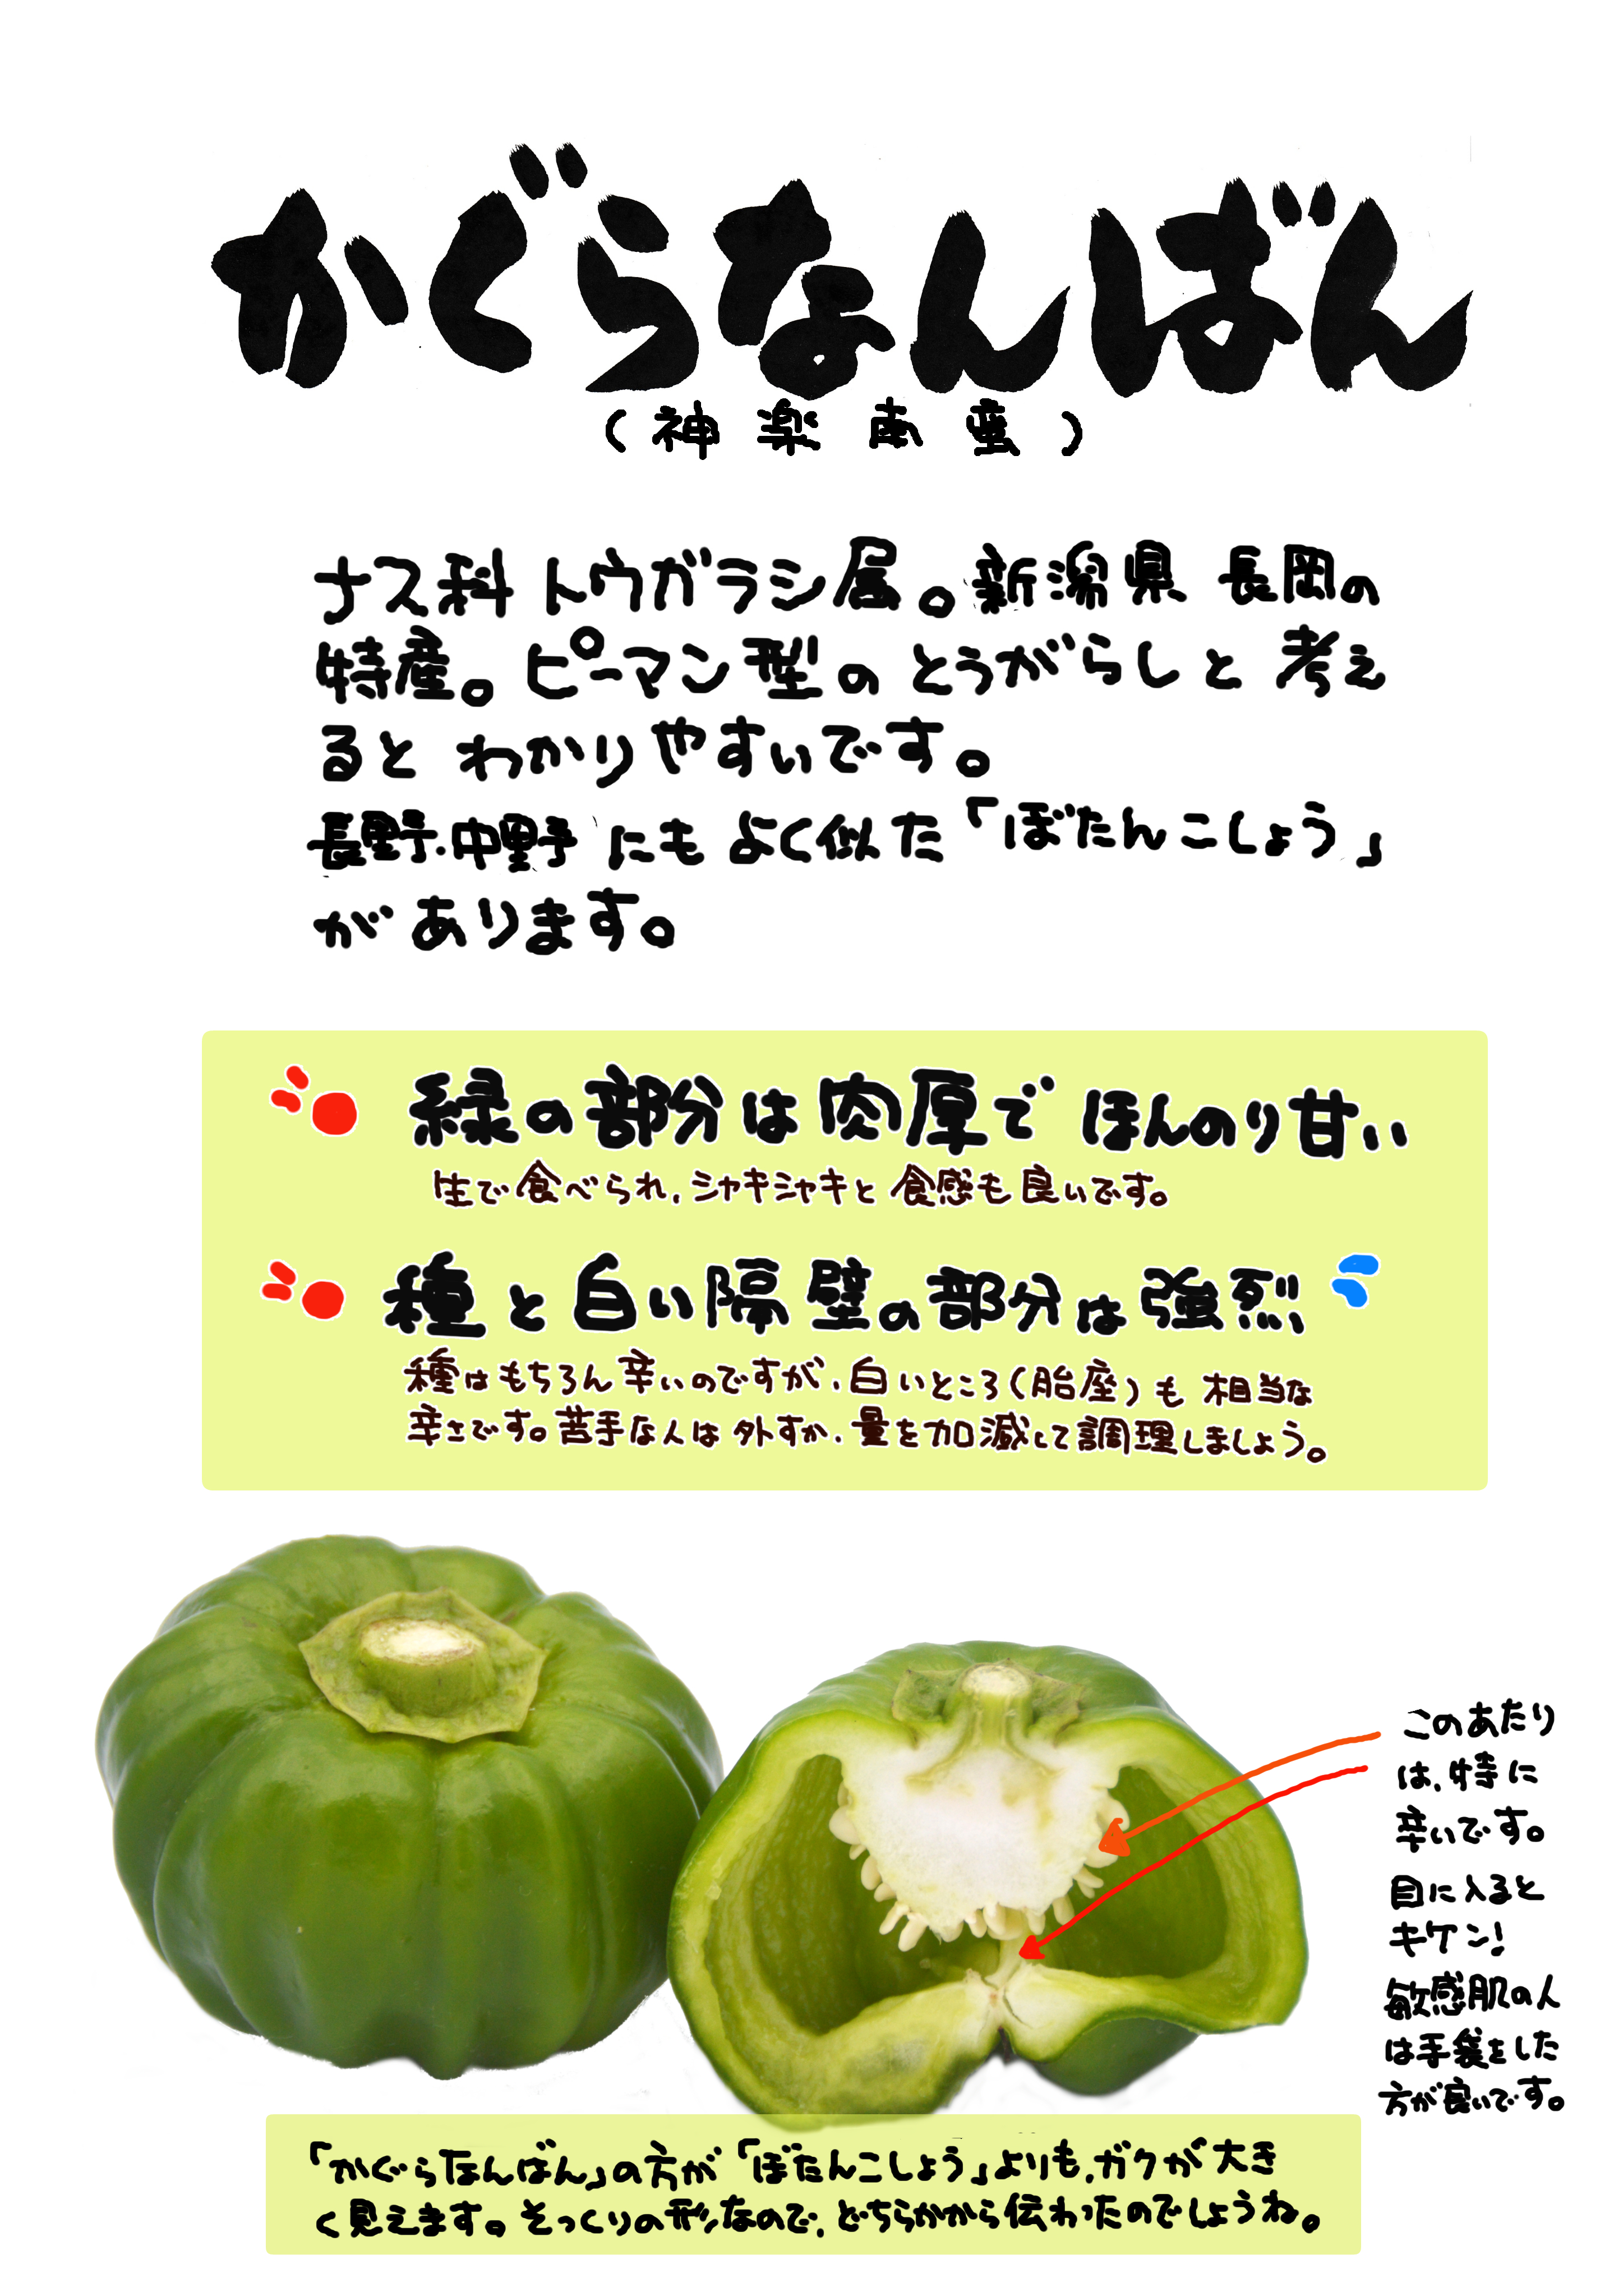 かぐらなんばん
(神楽南蛮)
ナス科トウガラシ属。新潟県長岡の
特産。ピーマン型のとうがらしと考え
るとわかりやすいです。
長野・中野にもよく似た「ぼたんこしょう」
があります。
緑の部分は肉厚でほんのり甘い
生で食べられ、シャキシャキと食感も良いです。
種と白い隔壁の部分は強烈
種はもちろん辛いのですが、白いところ(胎座)も相当な
辛さです。苦手な人は外すか、量を加減して調理しましょう。
このあたり
は、特に
辛いです。
目に入ると
キケン!
敏感肌の人
は手袋をした
方が良いです。
「かぐらなんばん」の方が「ぼたんこしょう」よりも、ガクが大き
く見えます。そっくりの形なので、どちらかから伝わったのでしょうね。